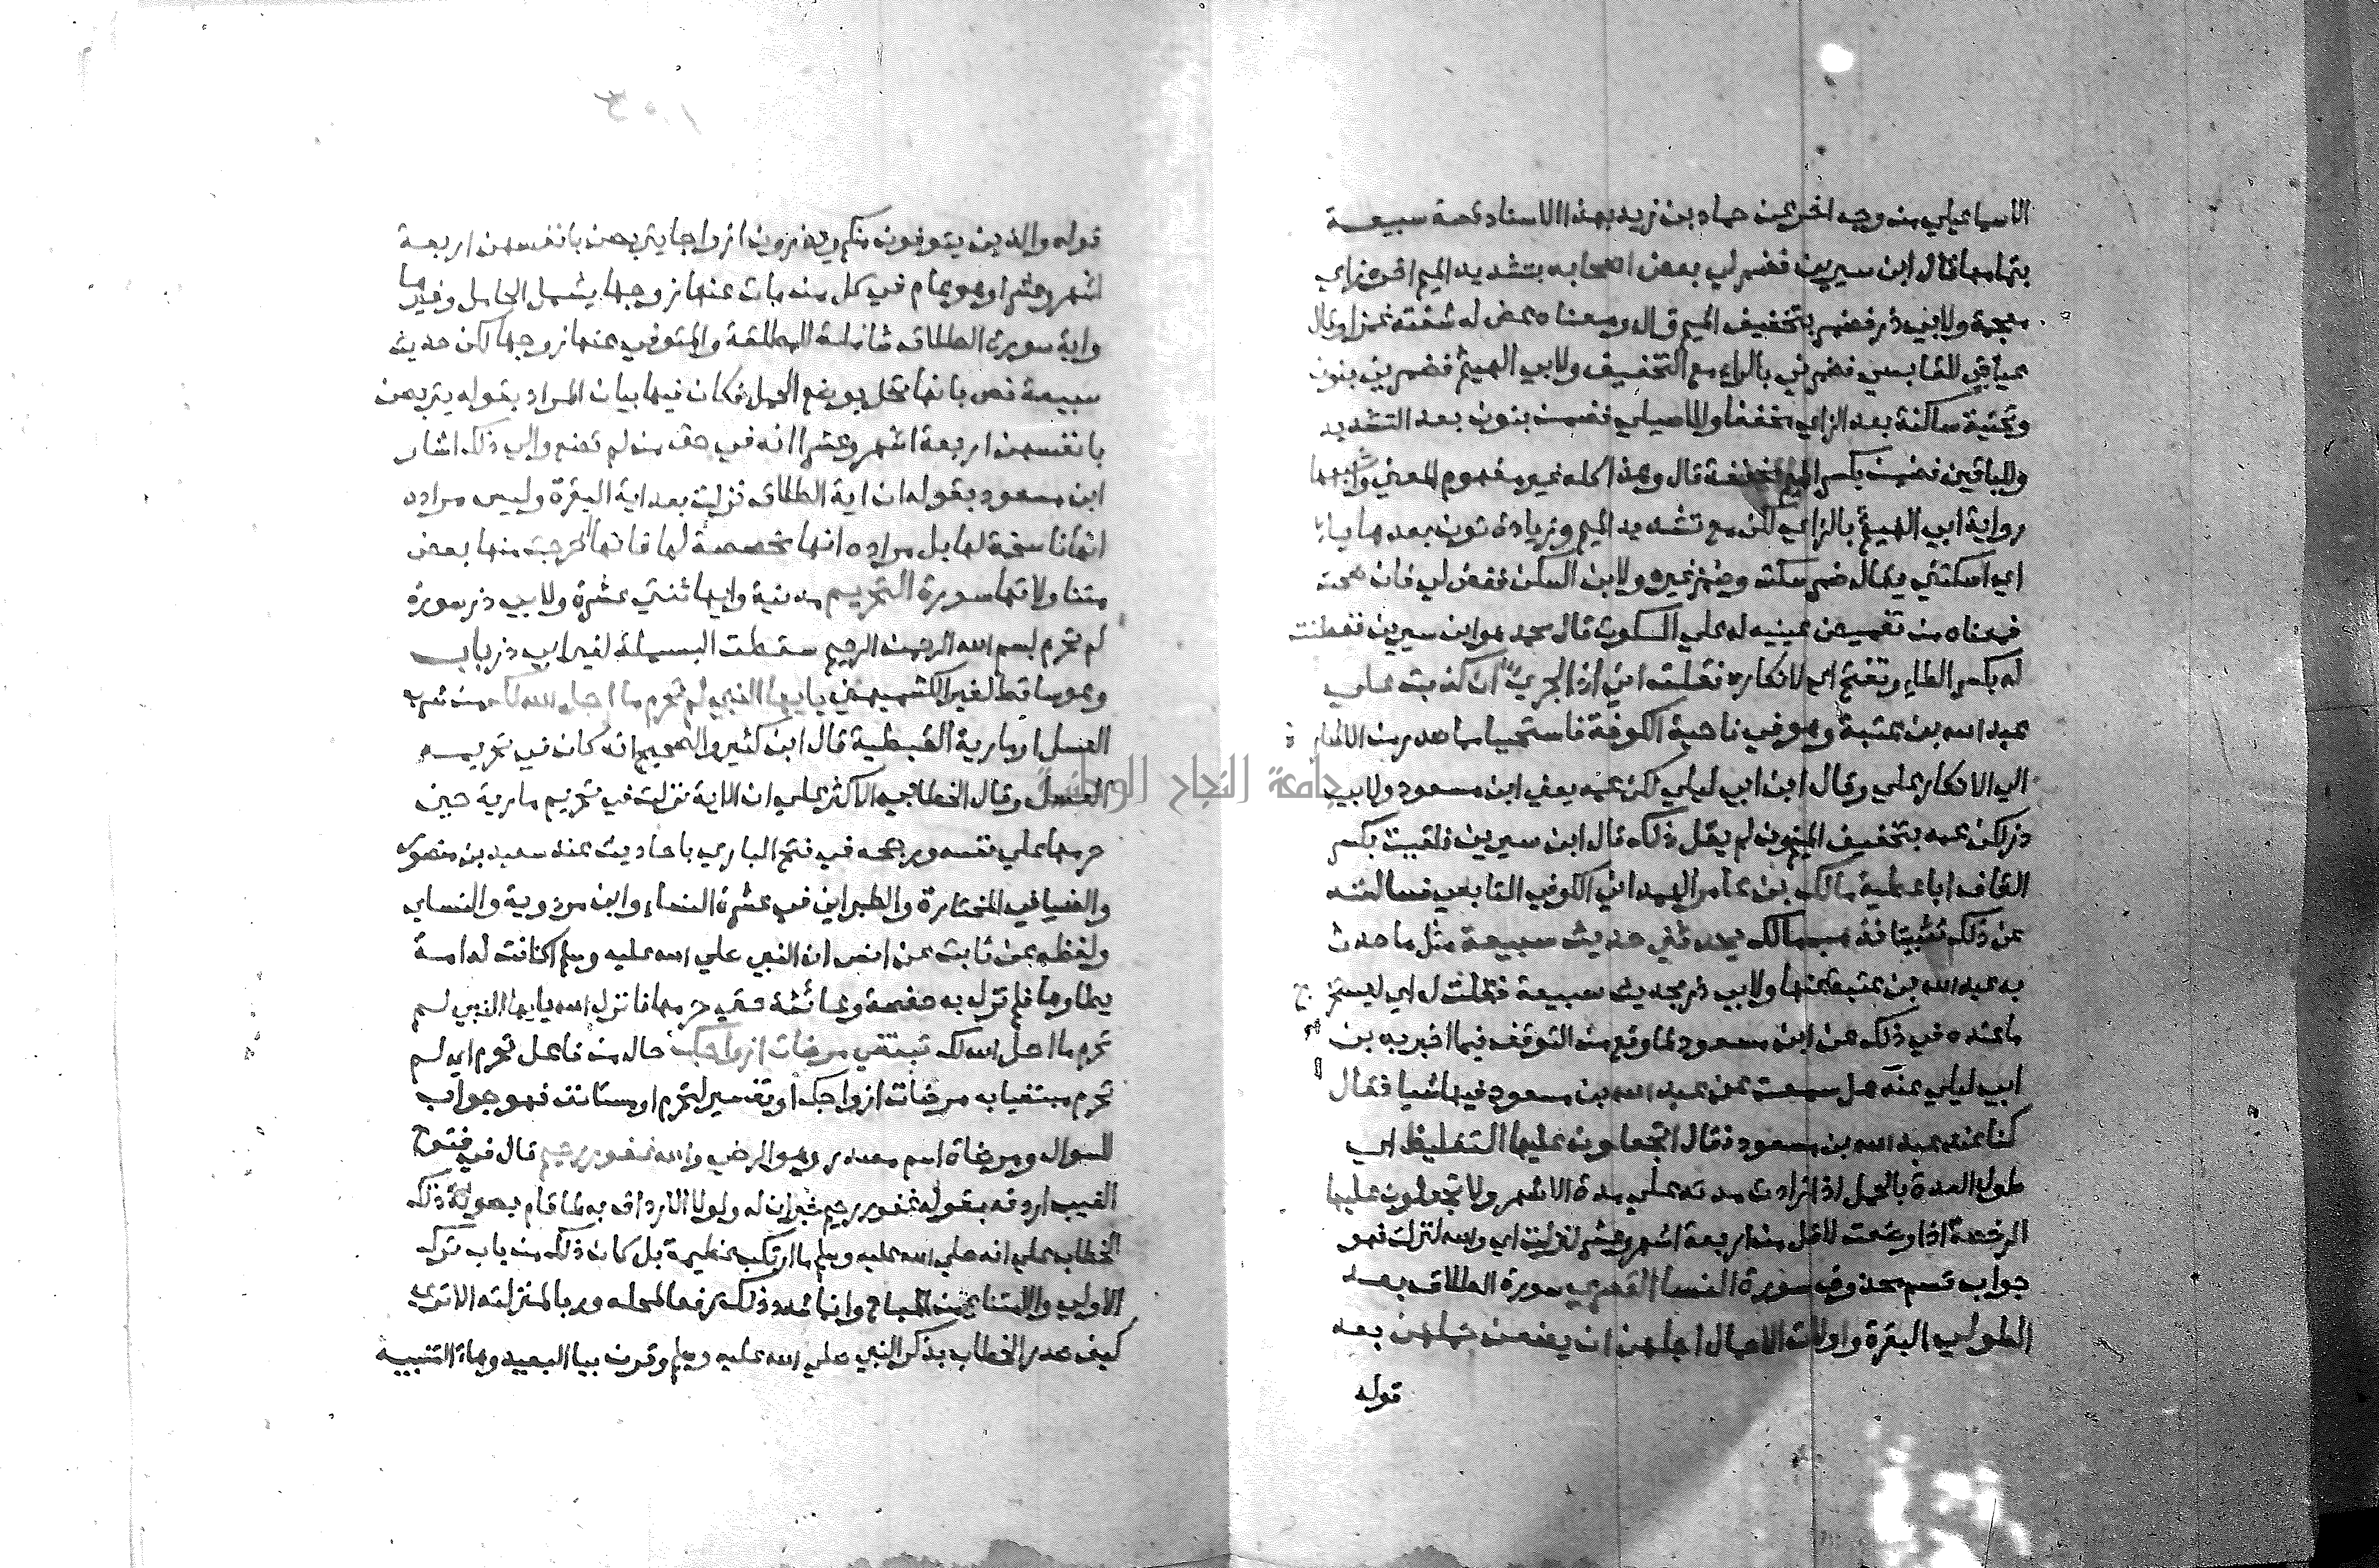 الاسماعيلي من وجه اخر عن حماد بن زيد بهذا الاسناد قصة سبيعة
بتمامها قال ابن سيرين فضمز لي بعض اصحابه بتشديد الميم اخره زاي
معجمة ولابي ذر فضمز بتخفيف الميم قال ومعناه عض له شفته غمزا وقال
عياض للقابسي فضمزني بالراء مع التخفيف ولابي الهيثم فضمزني بنون
وتحتية ساكنة بعد الزاي مخففا وللاصيلي فضمن بنون بعد التشديد
وللباقين فضمن بكسر الميم المخففة قال وهذا كله غير مفهوم المعنى واشبهها
رواية ابي الهيثم بالزاي لكن مع تشديد الميم وزيادة نون بعدها ياء
اي اسكتني يقال ضمز سكت وضمز غيره ولابن السكن فغمض لي فان صحت
فمعناه من تغميض عينيه له علي السكوت قال محمد هو ابن سيرين ففطنت
له بكسر الطاء وتفتح اي لانكاره فقلت اني اذا لجري ان كذبت علي
عبد الله بن عتبة وهو في ناحية الكوفة فاستحيا مما صدر من الاشارة
الي الانكار علي وقال ابن ابي ليلي لكن عمه يعني ابن مسعود ولابي
ذر لكن عمه بتخفيف النون لم يقل ذلك قال ابن سيرين فلقيت بكسر
القاف ابا عطية مالك بن عامر الهمداني الكوفي التابعي فسالته
عن ذلك تثبيتا فذهب مالك يحدثني حديث سبيعة مثل ما حدث
به عبد الله بن عتبة عنها ولابي ذر بحديث سبيعة فقلت له اي ليستخرج
ما عنده في ذلك عن ابن مسعود لما وقع من التوقف فيما اخبر به بن
ابي ليلي عنه هل سمعت عن عبد الله بن مسعود فيها شيا فقال
كنا عند عبد الله بن مسعود فقال اتجعلون عليها التغليظ اي
طول العدة بالحمل اذا زادت مدته علي مدة الاشهر ولا تجعلون عليها
الرخصة اذا وضعت لاقل من اربعة اشهر وعشر لنزلت اي والله لنزلت فهو
جواب قسم محذوف سورة النسا القصري سورة الطلاق بعد
الطولي البقرة واولات الاحمال اجلهن ان يضعن حملهن بعد
قوله
قوله والذين يتوفون منكم ويذرون ازواجا يتربصن بانفسهن اربعة
اشهر وعشرا وهو عام في كل من مات عنها زوجها يشمل الحامل وغيرها
واية سورة الطلاق شاملة للمطلقة والمتوفي عنها زوجها لكن حديث
سبيعة نص بانها تحل بوضع الحمل فكان فيها بيان المراد بقوله يتربصن
بانفسهن اربعة اشهر وعشرا انه في حق من لم تضع والي ذلك اشار
ابن مسعود بقوله ان اية الطلاق نزلت بعد اية البقرة وليس مراده
انها ناسخة لها بل مراده انها مخصصة لها فانها اخرجت منها بعض
متناولاتها سورة التحريم مدنية وايها ثنتي عشرة ولابي ذر سورة
لم تحرم بسم الله الرحمن الرحيم سقطت البسملة لغير ابي ذر باب
وهو ساقط لغير الكشميهني يا يها النبي لم تحرم ما احل الله لك من شربه
العسل او مارية القبطية قال ابن كثير والصحيح انه كان في تحريمه
العسل وقال الخطابي الاكثر علي ان الاية نزلت في تحريم مارية حين
حرمها علي نفسه ورجحه في فتح الباري باحاديث عند سعيد بن منصور
والضيا في المختارة والطبراني في عشرة النساء وابن مردوية والنساي
ولفظه عن ثابت عن انس ان النبي صلي الله عليه وسلم كانت له امة
يطاوها فلم تزل به حفصة وعائشة حتي حرمها فانزل الله يا يها النبي لم
تحرم ما احل الله لك تبتغي مرضات ازواجك حال من فاعل تحرم اي لم
تحرم مبتغيا به مرضات ازواجك او تفسير لتحرم او مستانف فهو جواب
السوال ومرضاة اسم مصدر وهو الرضي والله غفور رحيم قال في فتوح
الغيب اردفه بقوله غفور رحيم جبرانا له ولولا الارداف به لما قام بصولة ذلك
الخطاب علي انه صلي الله عليه وسلم ما ارتكب عظيمة بل كان ذلك من باب ترك
الاولي والامتناع من المباح وانما شدد ذلك رفعا لمحله وربا لمنزلته الا تري
كيف صدر الخطاب بذكر النبي صلي الله عليه وسلم وقرن بيا البعيد وهاء التنبيه
جامعة النجاح الوطنية